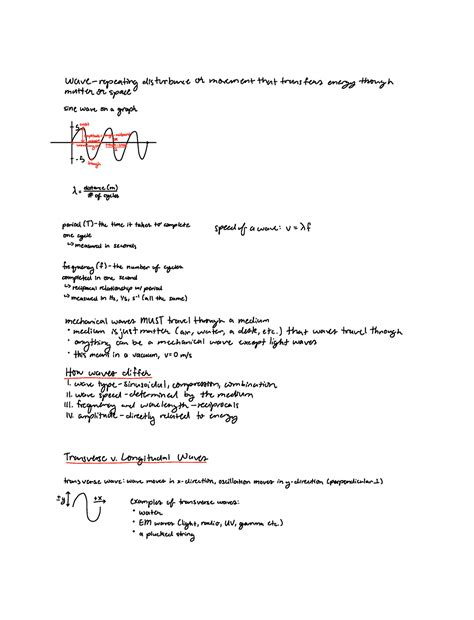 wave - repeating disturbance or movement that transfers energy though
matter or space
sine wave on a graph
λ = distance (m)
# of cycles
period (T) - the time it takes to complete
one cycle
↳ measured in seconds
speed of a wave: v = λf
frequency (f) - the number of cycles
completed in one second
↳ reciprocal relationship w/ period
↳ measured in Hz, 1/s, s⁻¹ (all the same)
mechanical waves MUST travel through a medium
• medium is just matter (air, water, a desk, etc.) that waves travel through
• anything can be a mechanical wave except light waves
• this mean in a vacuum, v=0 m/s
How waves differ
I. wave type - sinusoidal, compression, combination
II. wave speed - determined by the medium
III. frequency and wavelength - reciprocals
IV. amplitude - directly related to energy
Transverse v. Longitudal Waves
transverse wave: wave moves in x-direction, oscillation moves in y-direction (perpendicular ⊥)
±y
+x
examples of transverse waves:
• water
• EM waves (light, radio, UV, gamma etc.)
• a plucked string